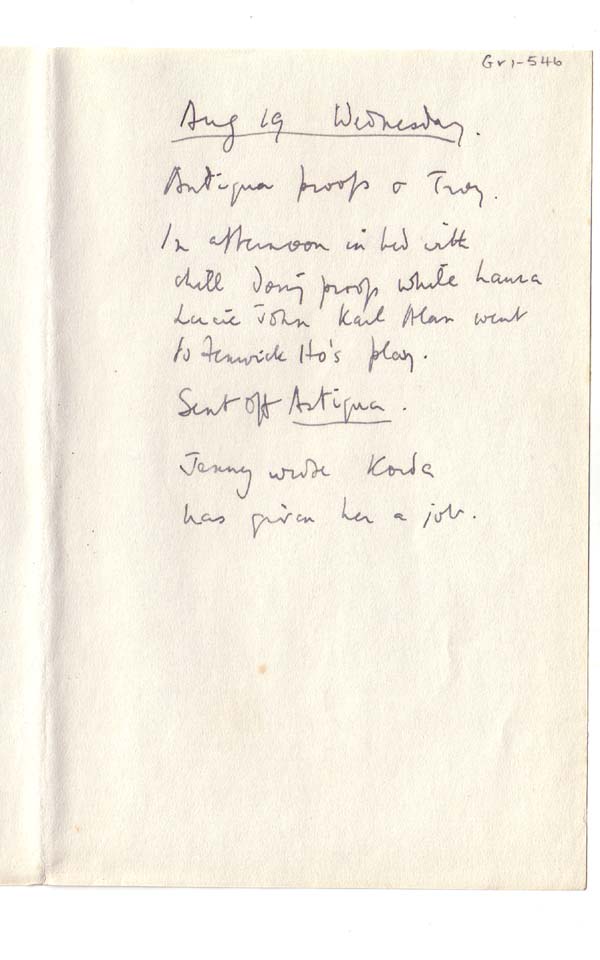 Gr1-546
Aug 19 Wednesday.
Antigua proofs o Troy.
In afternoon in bed with
chill doing proofs while Laura
Lucie John Karl Alan went
to Fenwick Ho's play.
Sent off Antigua.
Jenny wrote Korda
has given her a job.